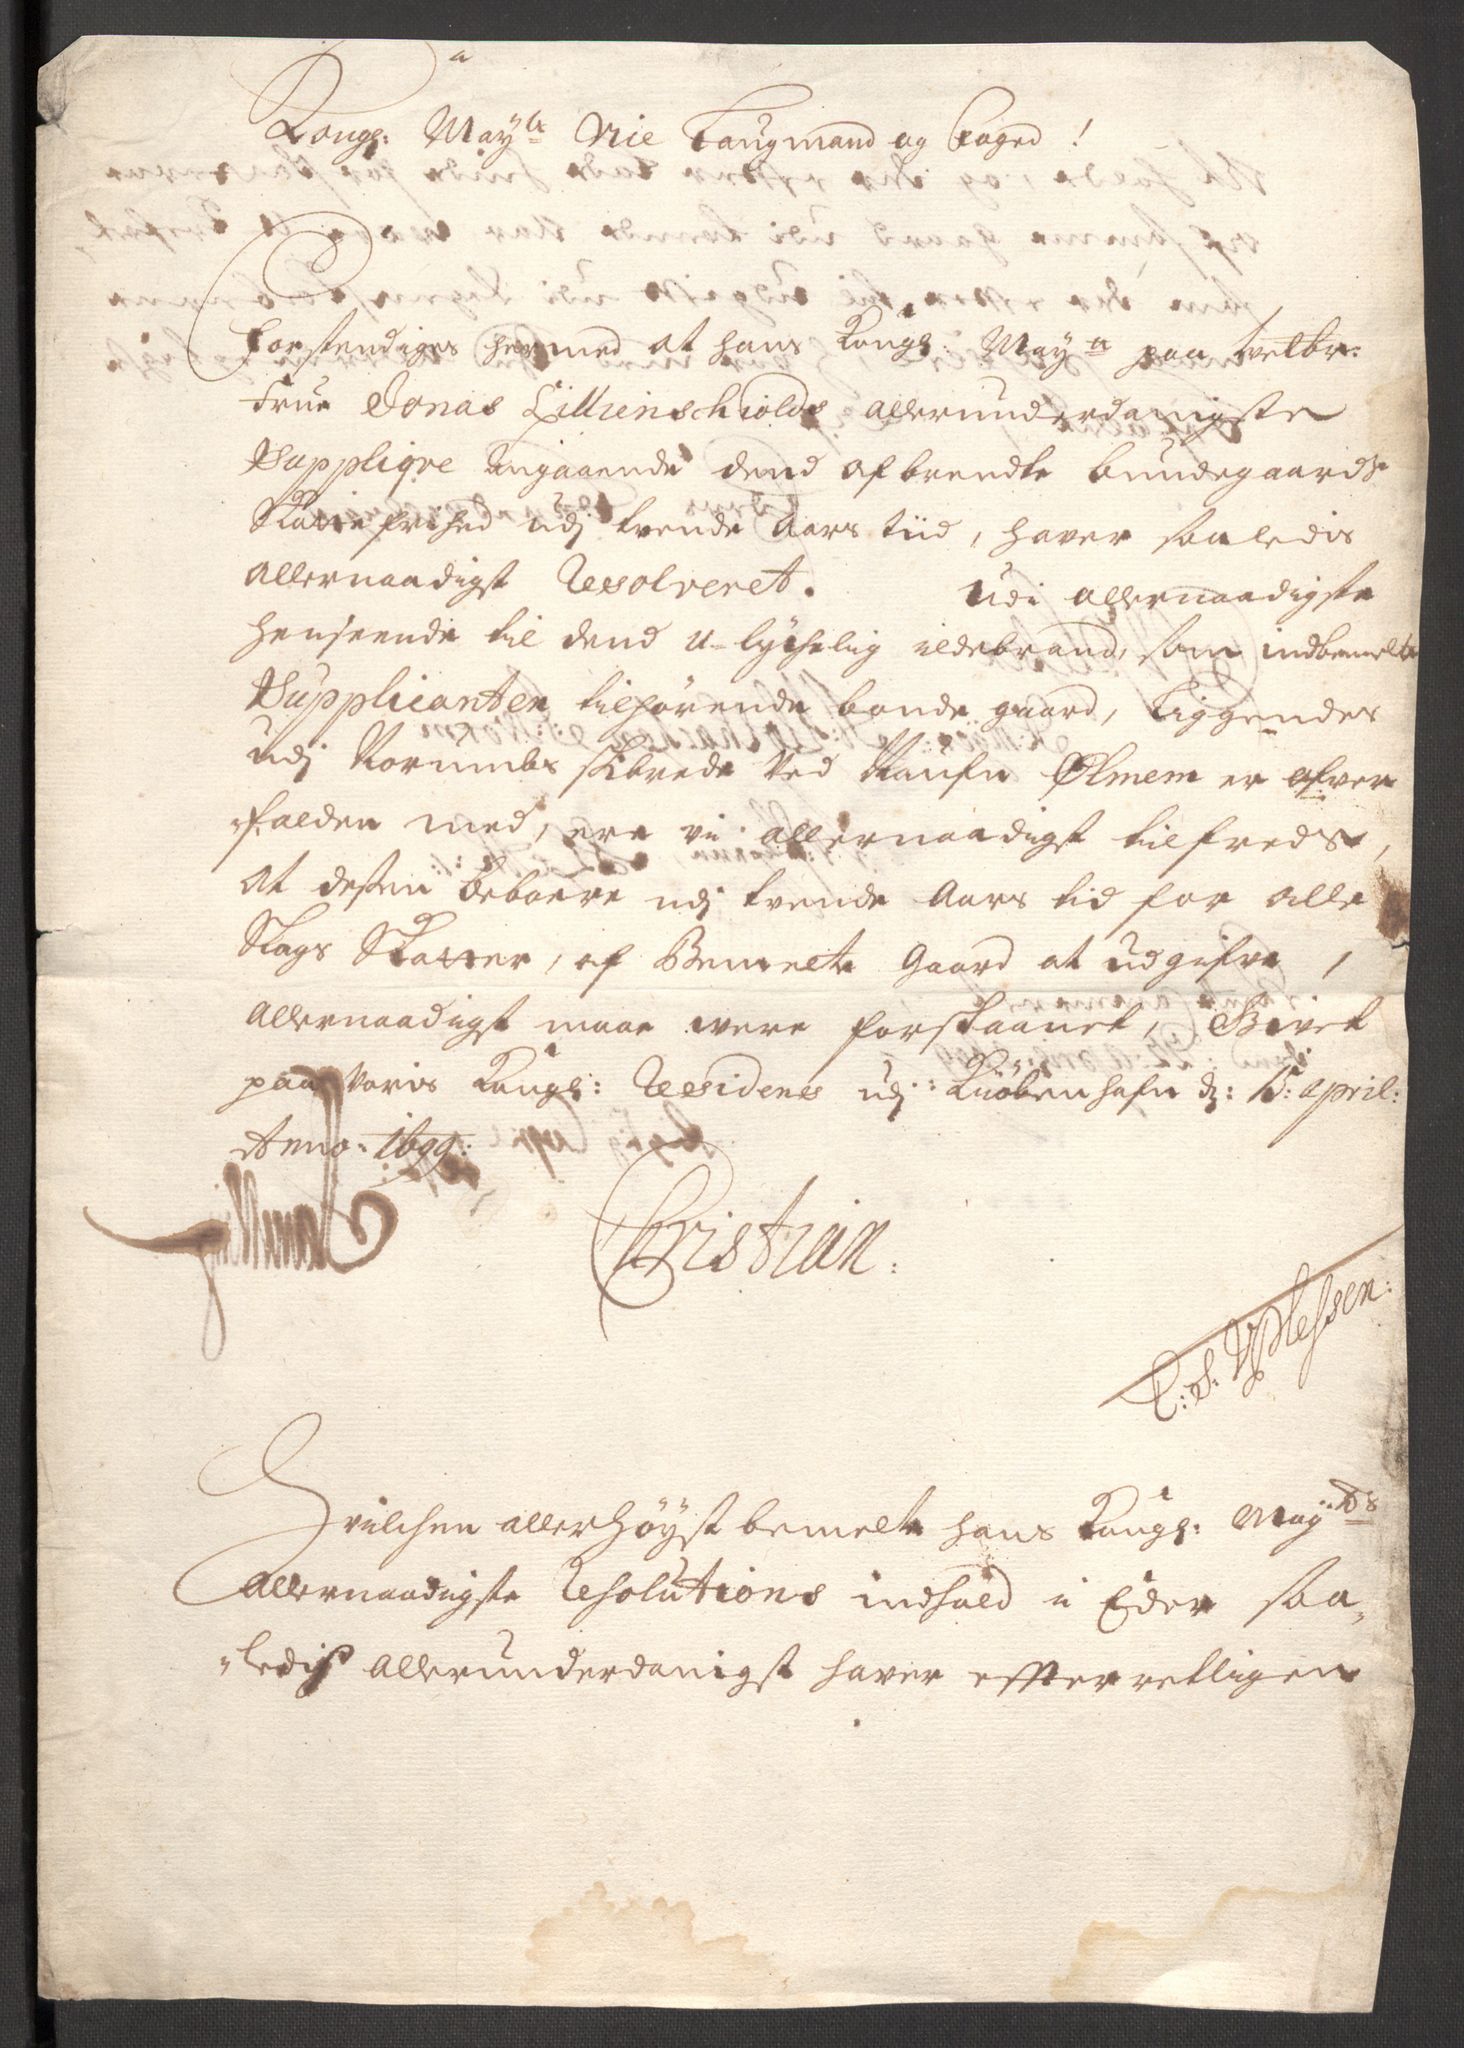 Kongl: May:tz Vice Laugmand og foged!
Forstendiges hermed at hans Kongl: May:tt paa velbr:
Frue Jonas Lillienschiolds allerunderdanigste
Suppliqve angaaende dend afbrendte bundegaards
Skatte frihed udj tvende Aars tiid, haver saaledis
allernaadigst Resolveret. Udi allernaadigste
henseende til dend u-lychelig ildebrand, som indbemelte
Supplicanten tilhørende bonde gaard, liggendes
udj Norumbs skibrede ved Nafn Ølmem er ofver
falden med, ere vi allernaadigst tilfreds,
at dessen beboere udj tvende Aars tid for alle
Slags Skatter, af Bemelte Gaard at udgifve,
allernaadigst maae were forskaanet, Givet
paa Voris Kongl: Residens udj Kiøbenhafn d: 15: april:
Anno: 1699:
Christian:
C: S: V Plessen:
Hvilchen allerhøyst bemelte hans Kongl: May:tts
allernaadigste Resolutions indhold i Eder saa-
ledis allerunderdanigst haver effterretligen